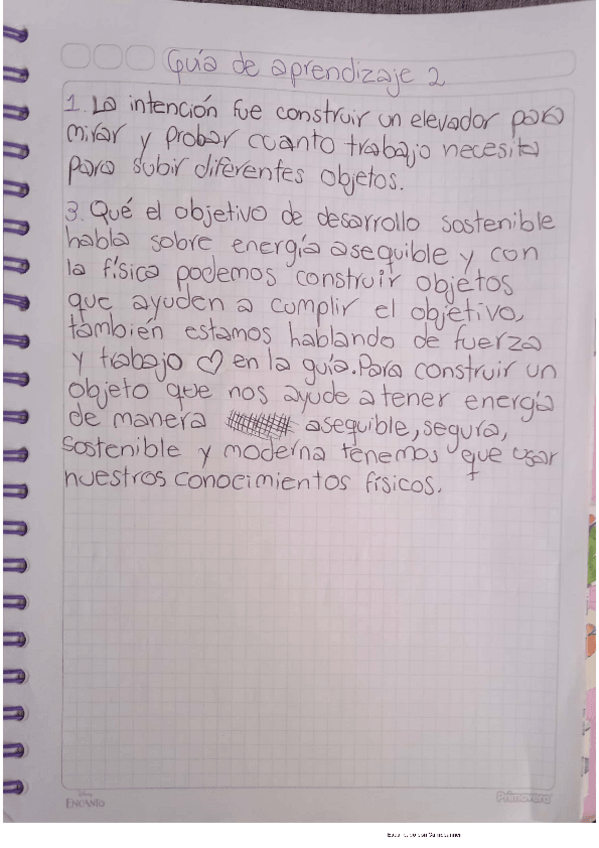 Guía de aprendizaje 2
1. La intención fue construir un elevador para
mirar y probar cuanto trabajo necesita
para subir diferentes objetos.
3. Qué el objetivo de desarrollo sostenible
habla sobre energía asequible y con
la física podemos construir objetos
que ayuden a cumplir el objetivo,
también estamos hablando de fuerza
y trabajo ♡ en la guía. Para construir un
objeto que nos ayude a tener energía
de manera asequible, segura,
sostenible y moderna tenemos que usar
nuestros conocimientos físicos.
Disney
ENCANTO
Primavera